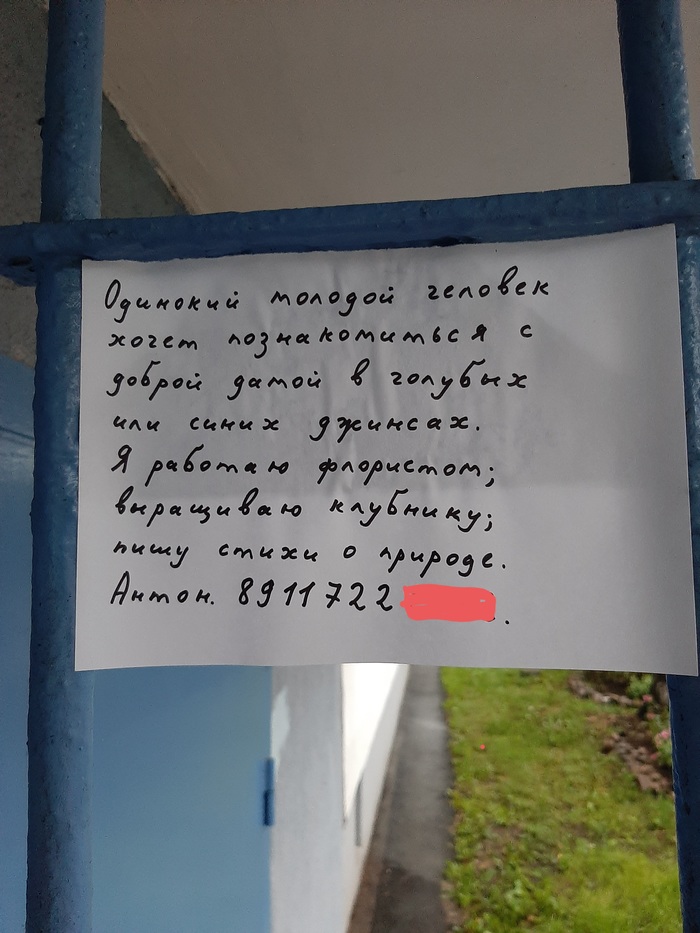 Одинокий молодой человек
хочет познакомиться с
доброй дамой в голубых
или синих джинсах.
Я работаю флористом;
выращиваю клубнику;
пишу стихи о природе.
Антон. 8911722 .